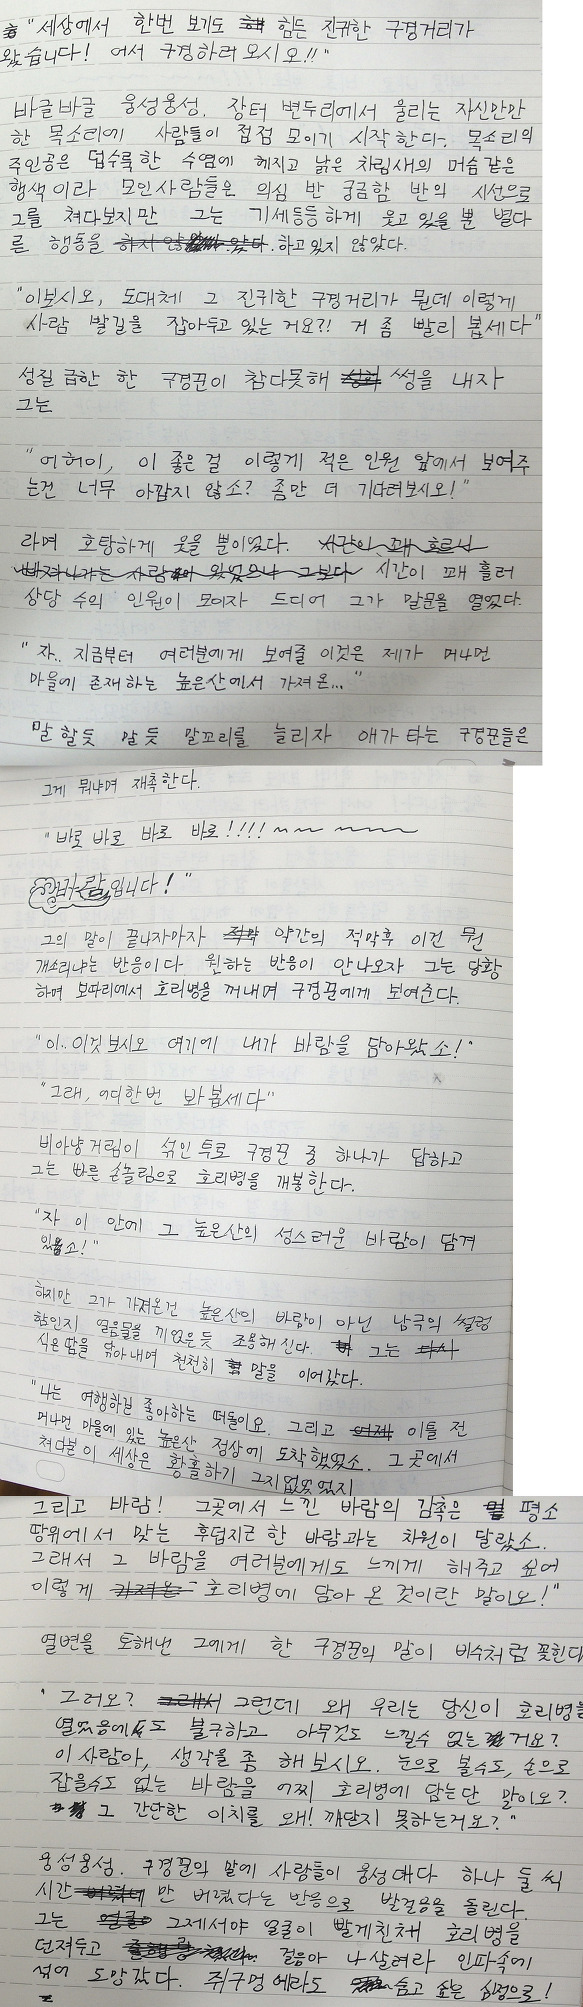 "세상에서 한번 보기도 힘든 진귀한 구경거리가
왔습니다! 어서 구경하러 오시오!!"
바글바글 웅성웅성. 장터 변두리에서 울리는 자신만만
한 목소리에 사람들이 점점 모이기 시작한다. 목소리의
주인공은 덥수룩한 수염에 헤지고 낡은 차림새의 머슴같은
행색이라 모인사람들은 의심 반 궁금함 반의 시선으로
그를 쳐다보지만 그는 기세등등하게 웃고있을 뿐 별다
른 행동을 하고있지 않았다.
"이보시오, 도대체 그 진귀한 구경거리가 뭔데 이렇게
사람 발길을 잡아두고 있는 거요?! 거 좀 빨리 봅세다"
성질 급한 한 구경꾼이 참다못해 썽을 내자
그는
"어허이, 이 좋은 걸 이렇게 적은 인원 앞에서 보여주
는건 너무 아깝지 않소? 좀만 더 기다려보시오!"
라며 호탕하게 웃을 뿐이었다. 시간이 꽤 흘러
상당 수의 인원이 모이자 드디어 그가 말문을 열었다.
"자.. 지금부터 여러분에게 보여줄 이것은 제가 머나먼
마을에 존재하는 높은산에서 가져온..."
말 할듯 말 듯 말꼬리를 늘리자 애가 타는 구경꾼들은
그게 뭐냐며 재촉한다.
"바로 바로 바로 바로!!!!~~ ~~~
바람입니다!"
그의 말이 끝나자마자 약간의 적막후 이건 뭔
개소리냐는 반응이다. 원하는 반응이 안나오자 그는 당황
하며 보따리에서 호리병을 꺼내며 구경꾼에게 보여준다.
"이..이것 보시오 여기에 내가 바람을 담아왔소!"
"그래, 어디한번 봐 봅세다"
비아냥거림이 섞인 투로 구경꾼 중 하나가 답하고
그는 빠른 손놀림으로 호리병을 개봉한다.
"자 이 안에 그 높은산의 성스러운 바람이 담겨
있소!"
하지만 그가 가져온건 높은산의 바람이 아닌 남극의 썰렁
함인지 얼음물을 끼얹은듯 조용해진다. 그는
식은땀을 닦아내며 천천히 말을 이어갔다.
"나는 여행하길 좋아하는 떠돌이요. 그리고 이틀 전
머나먼 마을에 있는 높은산 정상에 도착했었소. 그 곳에서
쳐다본 이 세상은 황홀하기 그지없었었지
그리고 바람! 그곳에서 느낀 바람의 감촉은 평소
땅위에서 맞는 후덥지근한 바람과는 차원이 달랐소.
그래서 그 바람을 여러분에게도 느끼게 해주고 싶어
이렇게 호리병에 담아 온 것이란 말이오!"
열변을 토해낸 그에게 한 구경꾼의 말이 비수처럼 꽂힌다
"그러오? 그런데 왜 우리는 당신이 호리병을
열었음에도 불구하고 아무것도 느낄수 없는 거요?
이 사람아, 생각을 좀 해보시오. 눈으로 볼수도, 손으로
잡을수도 없는 바람을 어찌 호리병에 담는단 말이오?
그 간단한 이치를 왜! 깨닫지 못하는거요?"
웅성웅성. 구경꾼의 말에 사람들이 웅성대다 하나 둘 씩
시간만 버렸다는 반응으로 발걸음을 돌린다.
그는 그제서야 얼굴이 발게진채 호리병을
던져두고 걸음아 나살려라 인파속에
섞여 도망갔다. 쥐구멍에라도 숨고 싶은 심정으로!